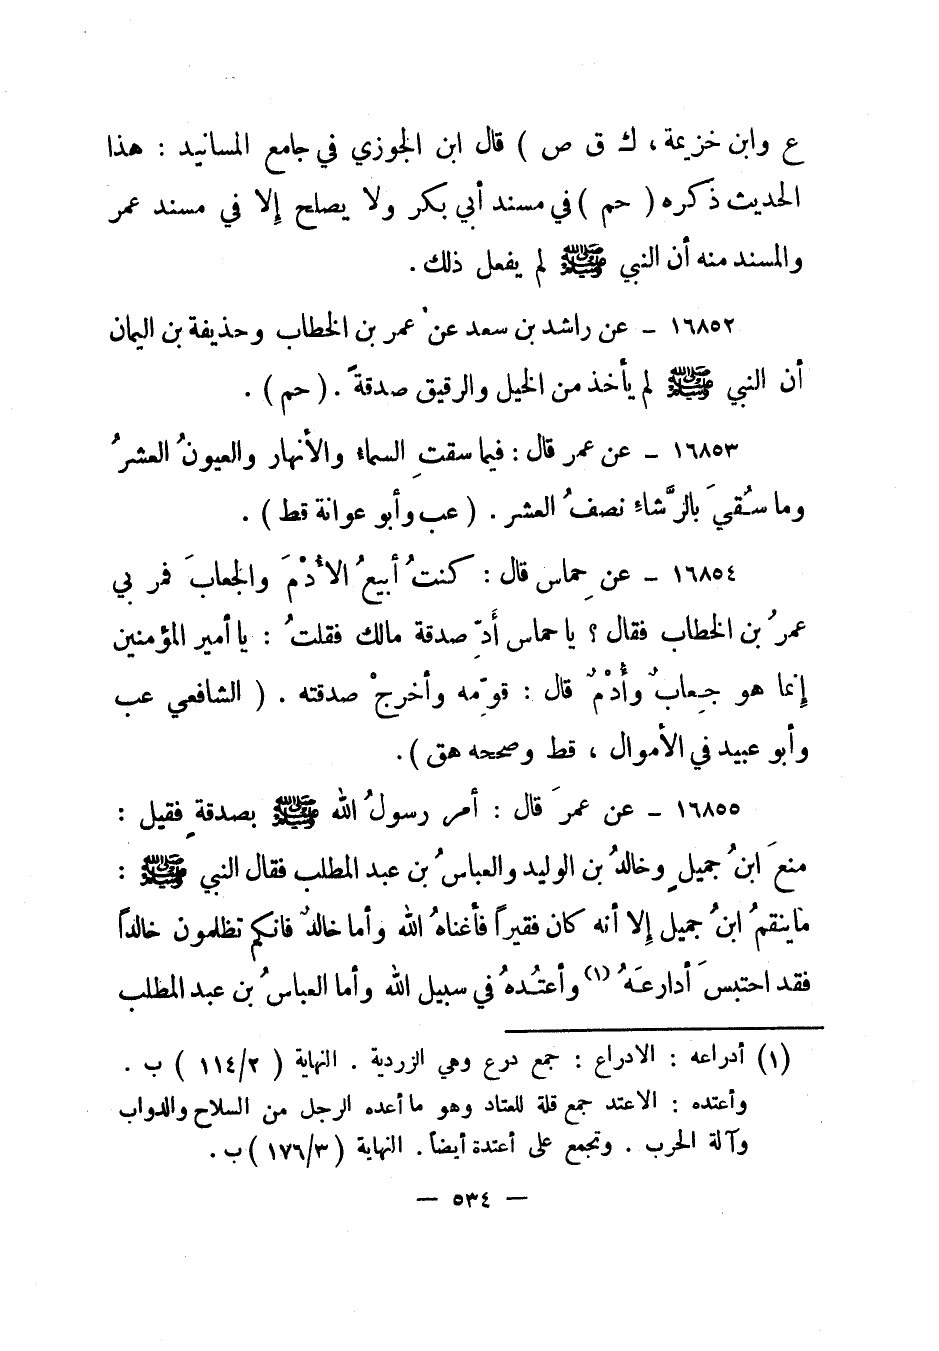 ع وابن خزيمة ، ك ق ص ) قال ابن الجوزي في جامع المسانيد : هذا
الحديث ذكره ( حم ) في مسند أبي بكر ولا يصلح إلا في مسند عمر
والمسند منه أن النبي ﷺ لم يفعل ذلك .
١٦٨٥٢ ـ عن راشد بن سعد عنْ عمر بن الخطاب وحذيفة بن اليمان
أن النبي ﷺ لم يأخذ من الخيل والرقيق صدقةً . ( حم ) .
١٦٨٥٣ ـ عن عمر قال : فيما سقتِ السماء والأنهار والعيونُ العشرُ
وما سُقيَ بالرَّشاءِ نصفُ العشر . ( عب وأبو عوانة قط ) .
١٦٨٥٤ ـ عن حِماس قال : كنتُ أبيعُ الأُدْمَ والجعابَ فمر بي
عمرُ بن الخطاب فقال ؟ يا حماس أَدِّ صدقة مالك فقلتُ : يا أمير المؤمنين
إنما هو جِعابٌ وأُدْمٌ قال : قوِّمه وأخرجْ صدقته . ( الشافعي عب
وأبو عبيد في الأموال ، قط وصححه هق ) .
١٦٨٥٥ ـ عن عمرَ قال : أمر رسولُ الله ﷺ بصدقةٍ فقيل :
منعَ ابنُ جميلٍ وخالدُ بن الوليد والعباسُ بن عبد المطلب فقال النبي ﷺ :
ماينقمُ ابنُ جميل إلا أنه كان فقيراً فأغناهُ الله وأما خالدٌ فانكم تظلمون خالداً
فقد احتبسَ أدارعَهُ (١) وأعتُدهُ في سبيل الله وأما العباسُ بن عبد المطلب
(١) أدراعه : الادراع : جمع درع وهي الزردية . النهاية ( ١١٤/٢ ) ب .
وأعتده : الاعتد جمع قلة للعتاد وهو ما أعده الرجل من السلاح والدواب
وآلة الحرب . وتجمع على أعتدة أيضاً . النهاية ( ١٧٦/٣ ) ب .
— ٥٣٤ —